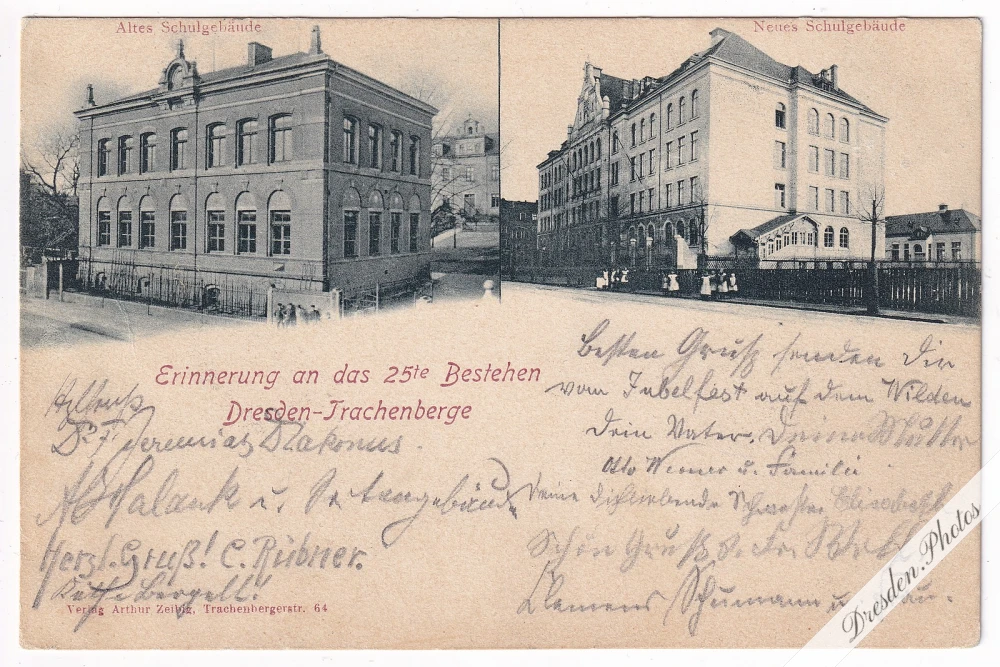 Altes Schulgebäude
Neues Schulgebäude
Erinnerung an das 25te Bestehen
Dresden-Trachenberge
Besten Gruß senden Dir
vom Jubelfest auf dem Wilden
Dein Vater, Deine Mutter
Otto Werner u. Familie
Deine Dichliebende Schwester Elisabeth
Schön Gruß
Clemens Schumann u.
Dr. F. Jeremias Diakonus.
u.
Herzl. Gruß! C. Rübner.
Verlag Arthur Zeibig, Trachenbergerstr. 64
Dresden.Photos